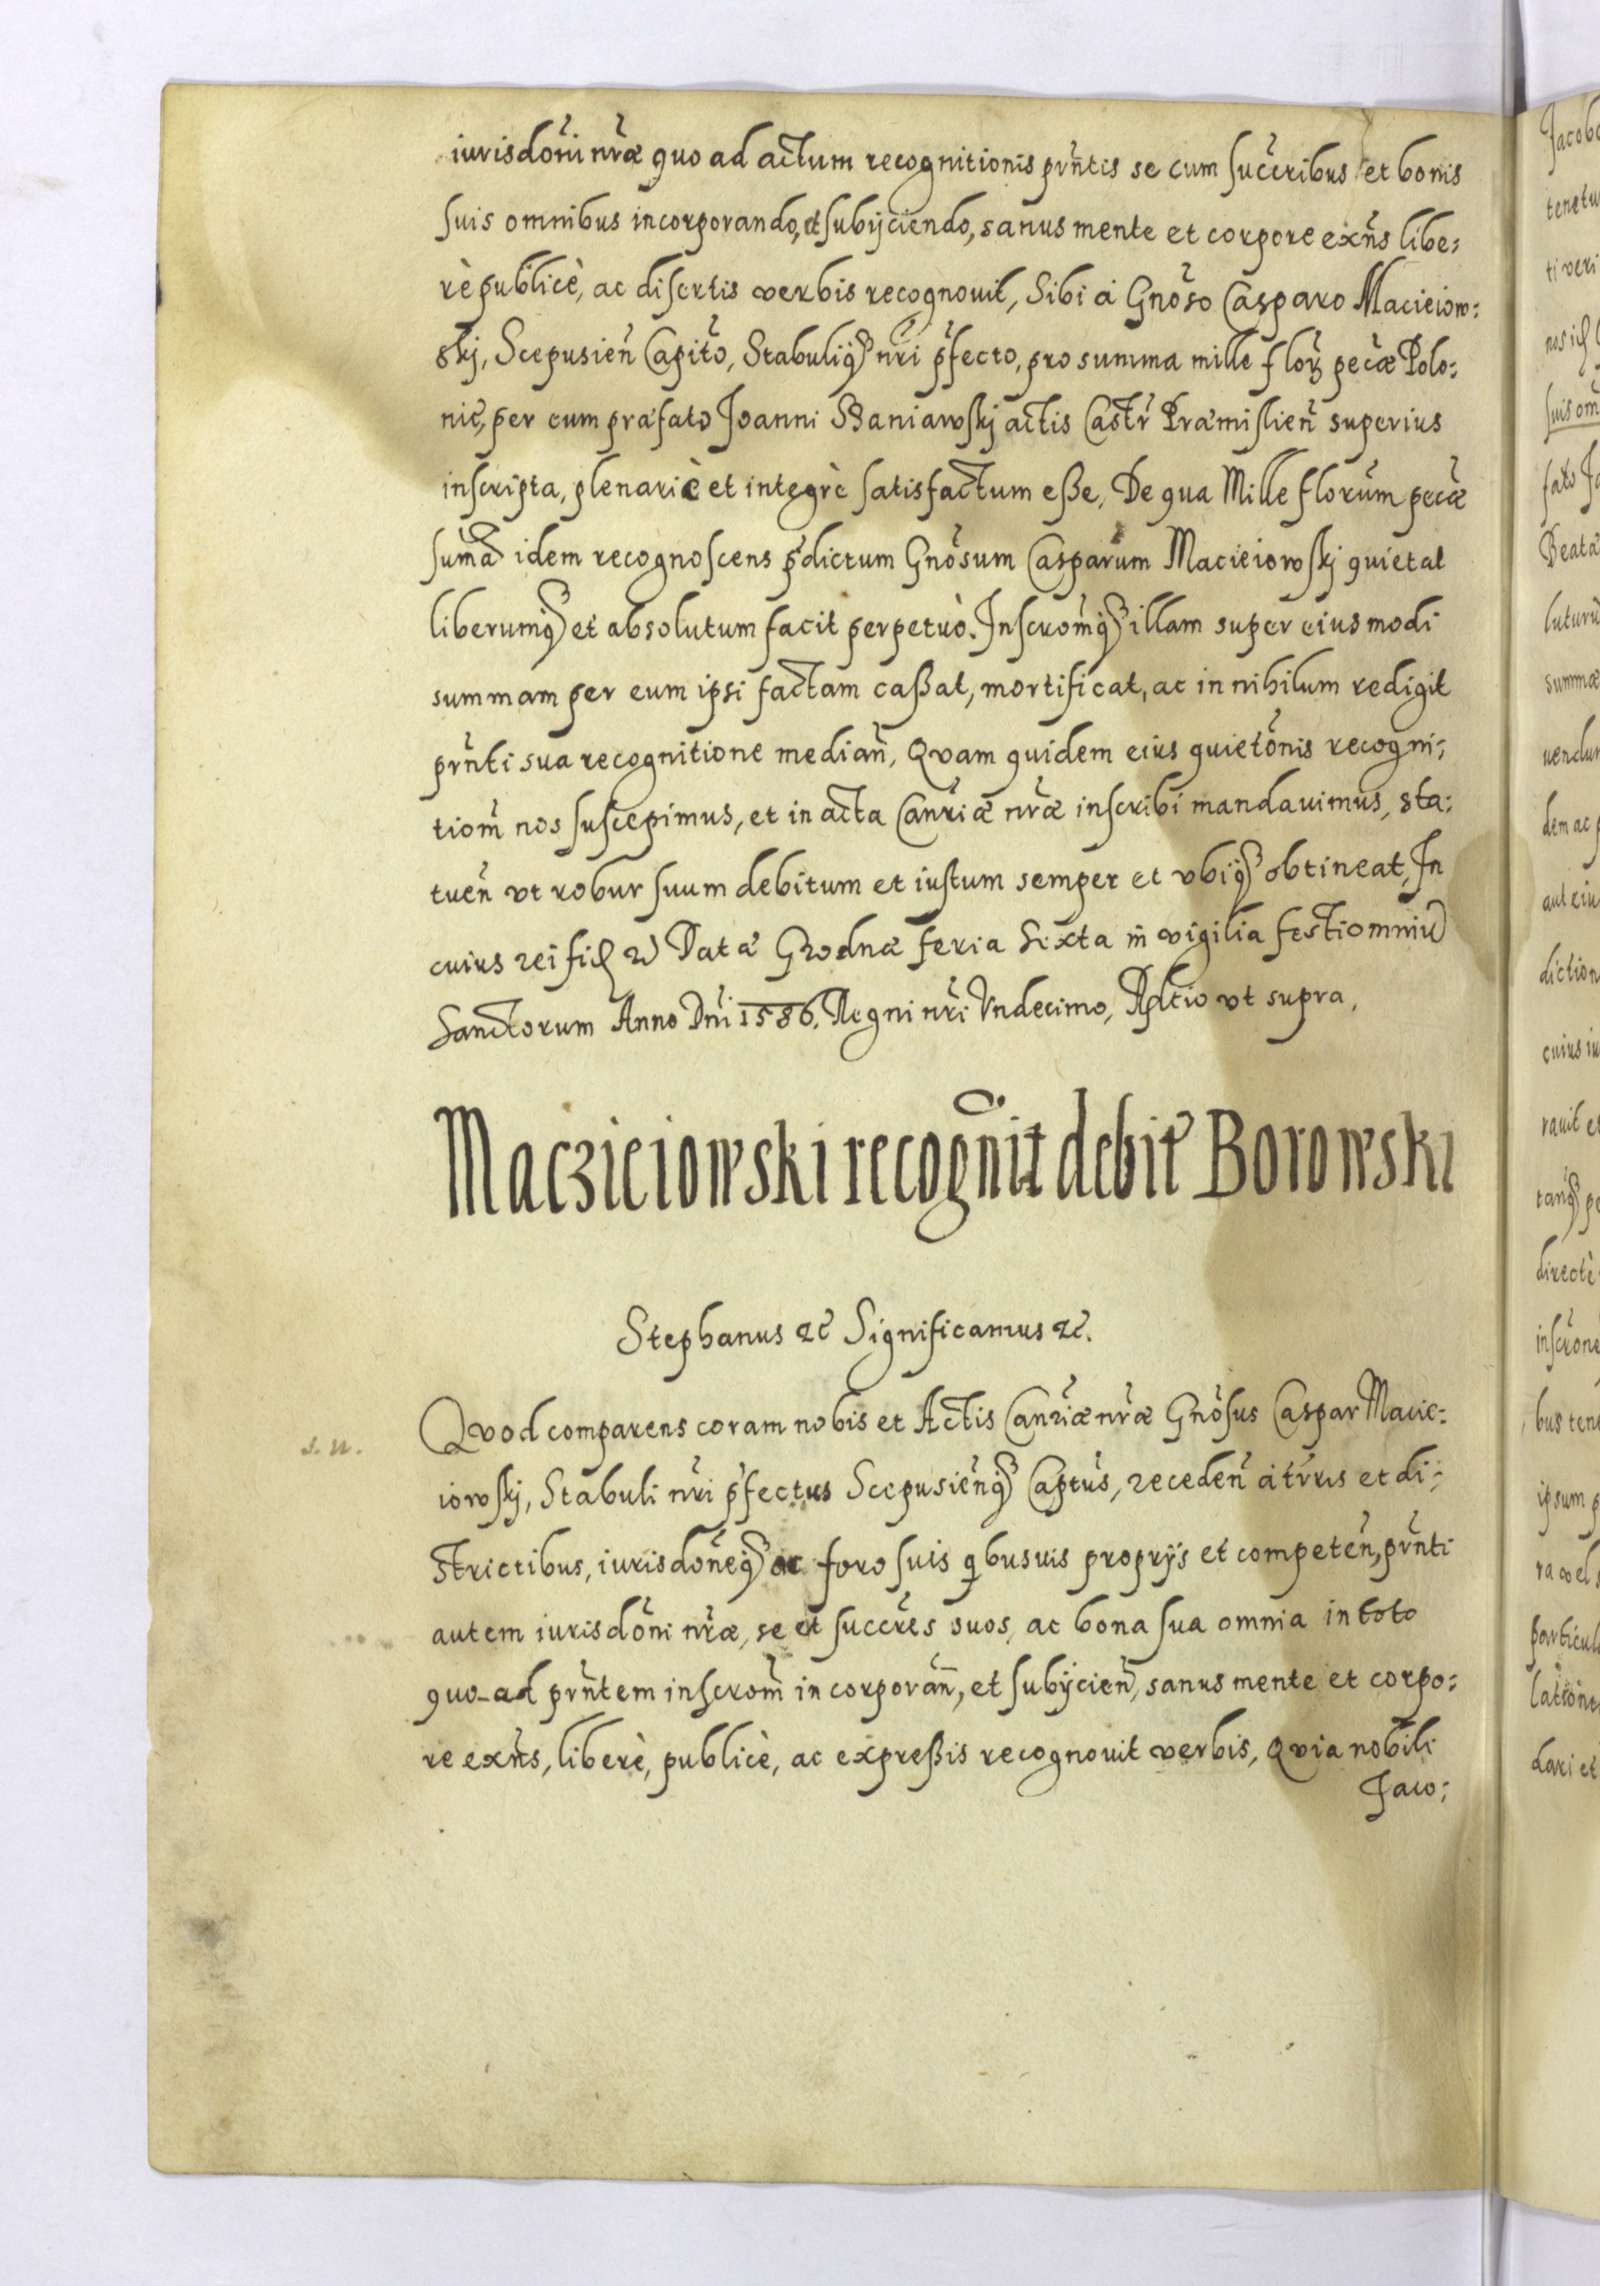 iurisdoni nræ quo ad actum recognitionis prntis se cum succribus et bonis
suis omnibus incorporando, et subijciendo, sanus mente et corpore exns libe:
rè publicè, ac disertis verbis recognovit, Sibi à Gnoso Casparo Macieiow:
skj, Scepusien Capito, Stabuliq nri pfecto, pro summa mille flor pecæ Polo:
nic, per eum præfato Joanni Baniawskj actis Castr Præmislien superius
inscripta, plenariè et integrè satisfactum eße, De qua Mille florum pecæ
suma idem recognoscens pdictum Gnosum Casparum Macieiowskj quietat
liberumq et absolutum facit perpetuò. Inscromq illam super eiusmodi
summam per eum ipsi factam caßat, mortificat, ac in nihilum redigit
prnti sua recognitione median, Quam quidem eius quietonis recogni:
tiom nos suscepimus, et in acta Canriæ nræ inscribi mandavimus, sta:
tuen vt robur suum debitum et iustum semper et vbiq obtineat, In
cuius rei fi Datæ Grodnæ feria Sixta in vigilia festi omniu
Sanctorum Anno Dni 1586. Regni nri Undecimo, vt supra,
Macziciowski recognit debit Borowski
Stephanus etc Significamus etc.
Quod comparens coram nobis et Actis Canriæ nræ Gnosus Caspar Macie:
s. n.
iowskj, Stabuli nri pfectus Scepusienq Captus, receden à trris et di:
strictibus, iurisdoneq ac foro suis qbusuis proprijs et competen, prnti
autem iurisdoni nræ, se et succres suos, ac bona sua omnia in toto
quo-ad prntem inscrom incorporan, et subijcien, sanus mente et corpo:
re exns, liberè, publicè, ac expreßis recognovit verbis, Quia nobili
Jaco: